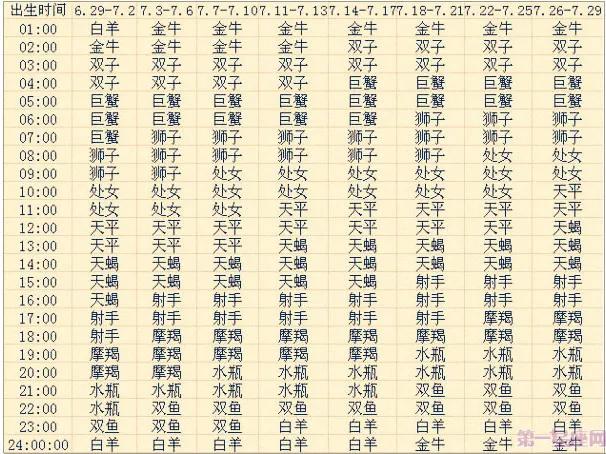 出生时间 6.29-7.2 7.3-7.6 7.7-7.10 7.11-7.13 7.14-7.17 7.18-7.21 7.22-7.25 7.26-7.29
01:00 白羊 金牛 金牛 金牛 金牛 金牛 金牛 金牛
02:00 金牛 金牛 金牛 金牛 双子 双子 双子 双子
03:00 双子 双子 双子 双子 双子 双子 双子 双子
04:00 双子 双子 双子 双子 巨蟹 巨蟹 巨蟹 巨蟹
05:00 巨蟹 巨蟹 巨蟹 巨蟹 巨蟹 巨蟹 巨蟹 巨蟹
06:00 巨蟹 巨蟹 巨蟹 巨蟹 巨蟹 狮子 狮子 狮子
07:00 巨蟹 狮子 狮子 狮子 狮子 狮子 狮子 狮子
08:00 狮子 狮子 狮子 狮子 狮子 狮子 处女 处女
09:00 狮子 狮子 处女 处女 处女 处女 处女 处女
10:00 处女 处女 处女 处女 处女 处女 处女 天平
11:00 处女 处女 处女 天平 天平 天平 天平 天平
12:00 天平 天平 天平 天平 天平 天平 天平 天蝎
13:00 天平 天平 天平 天平 天蝎 天蝎 天蝎 天蝎
14:00 天蝎 天蝎 天蝎 天蝎 天蝎 天蝎 天蝎 天蝎
15:00 天蝎 天蝎 天蝎 天蝎 天蝎 射手 射手 射手
16:00 天蝎 射手 射手 射手 射手 射手 射手 射手
17:00 射手 射手 射手 射手 射手 射手 摩羯 摩羯
18:00 射手 摩羯 摩羯 摩羯 摩羯 摩羯 摩羯 摩羯
19:00 摩羯 摩羯 摩羯 摩羯 摩羯 水瓶 水瓶 水瓶
20:00 摩羯 摩羯 水瓶 水瓶 水瓶 水瓶 水瓶 水瓶
21:00 水瓶 水瓶 水瓶 水瓶 水瓶 双鱼 双鱼 双鱼
22:00 水瓶 双鱼 双鱼 双鱼 双鱼 双鱼 双鱼 双鱼
23:00 双鱼 双鱼 双鱼 白羊 白羊 白羊 白羊 白羊
24:00:00 白羊 白羊 白羊 白羊 金牛 金牛 金牛 金牛
第一星座网